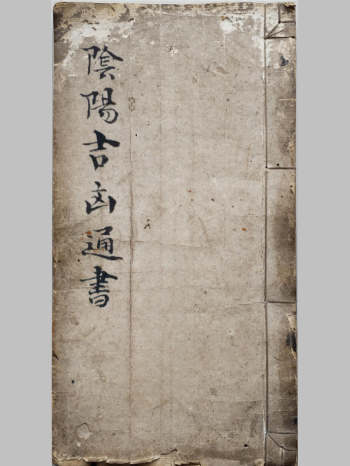 陰陽吉凶通書